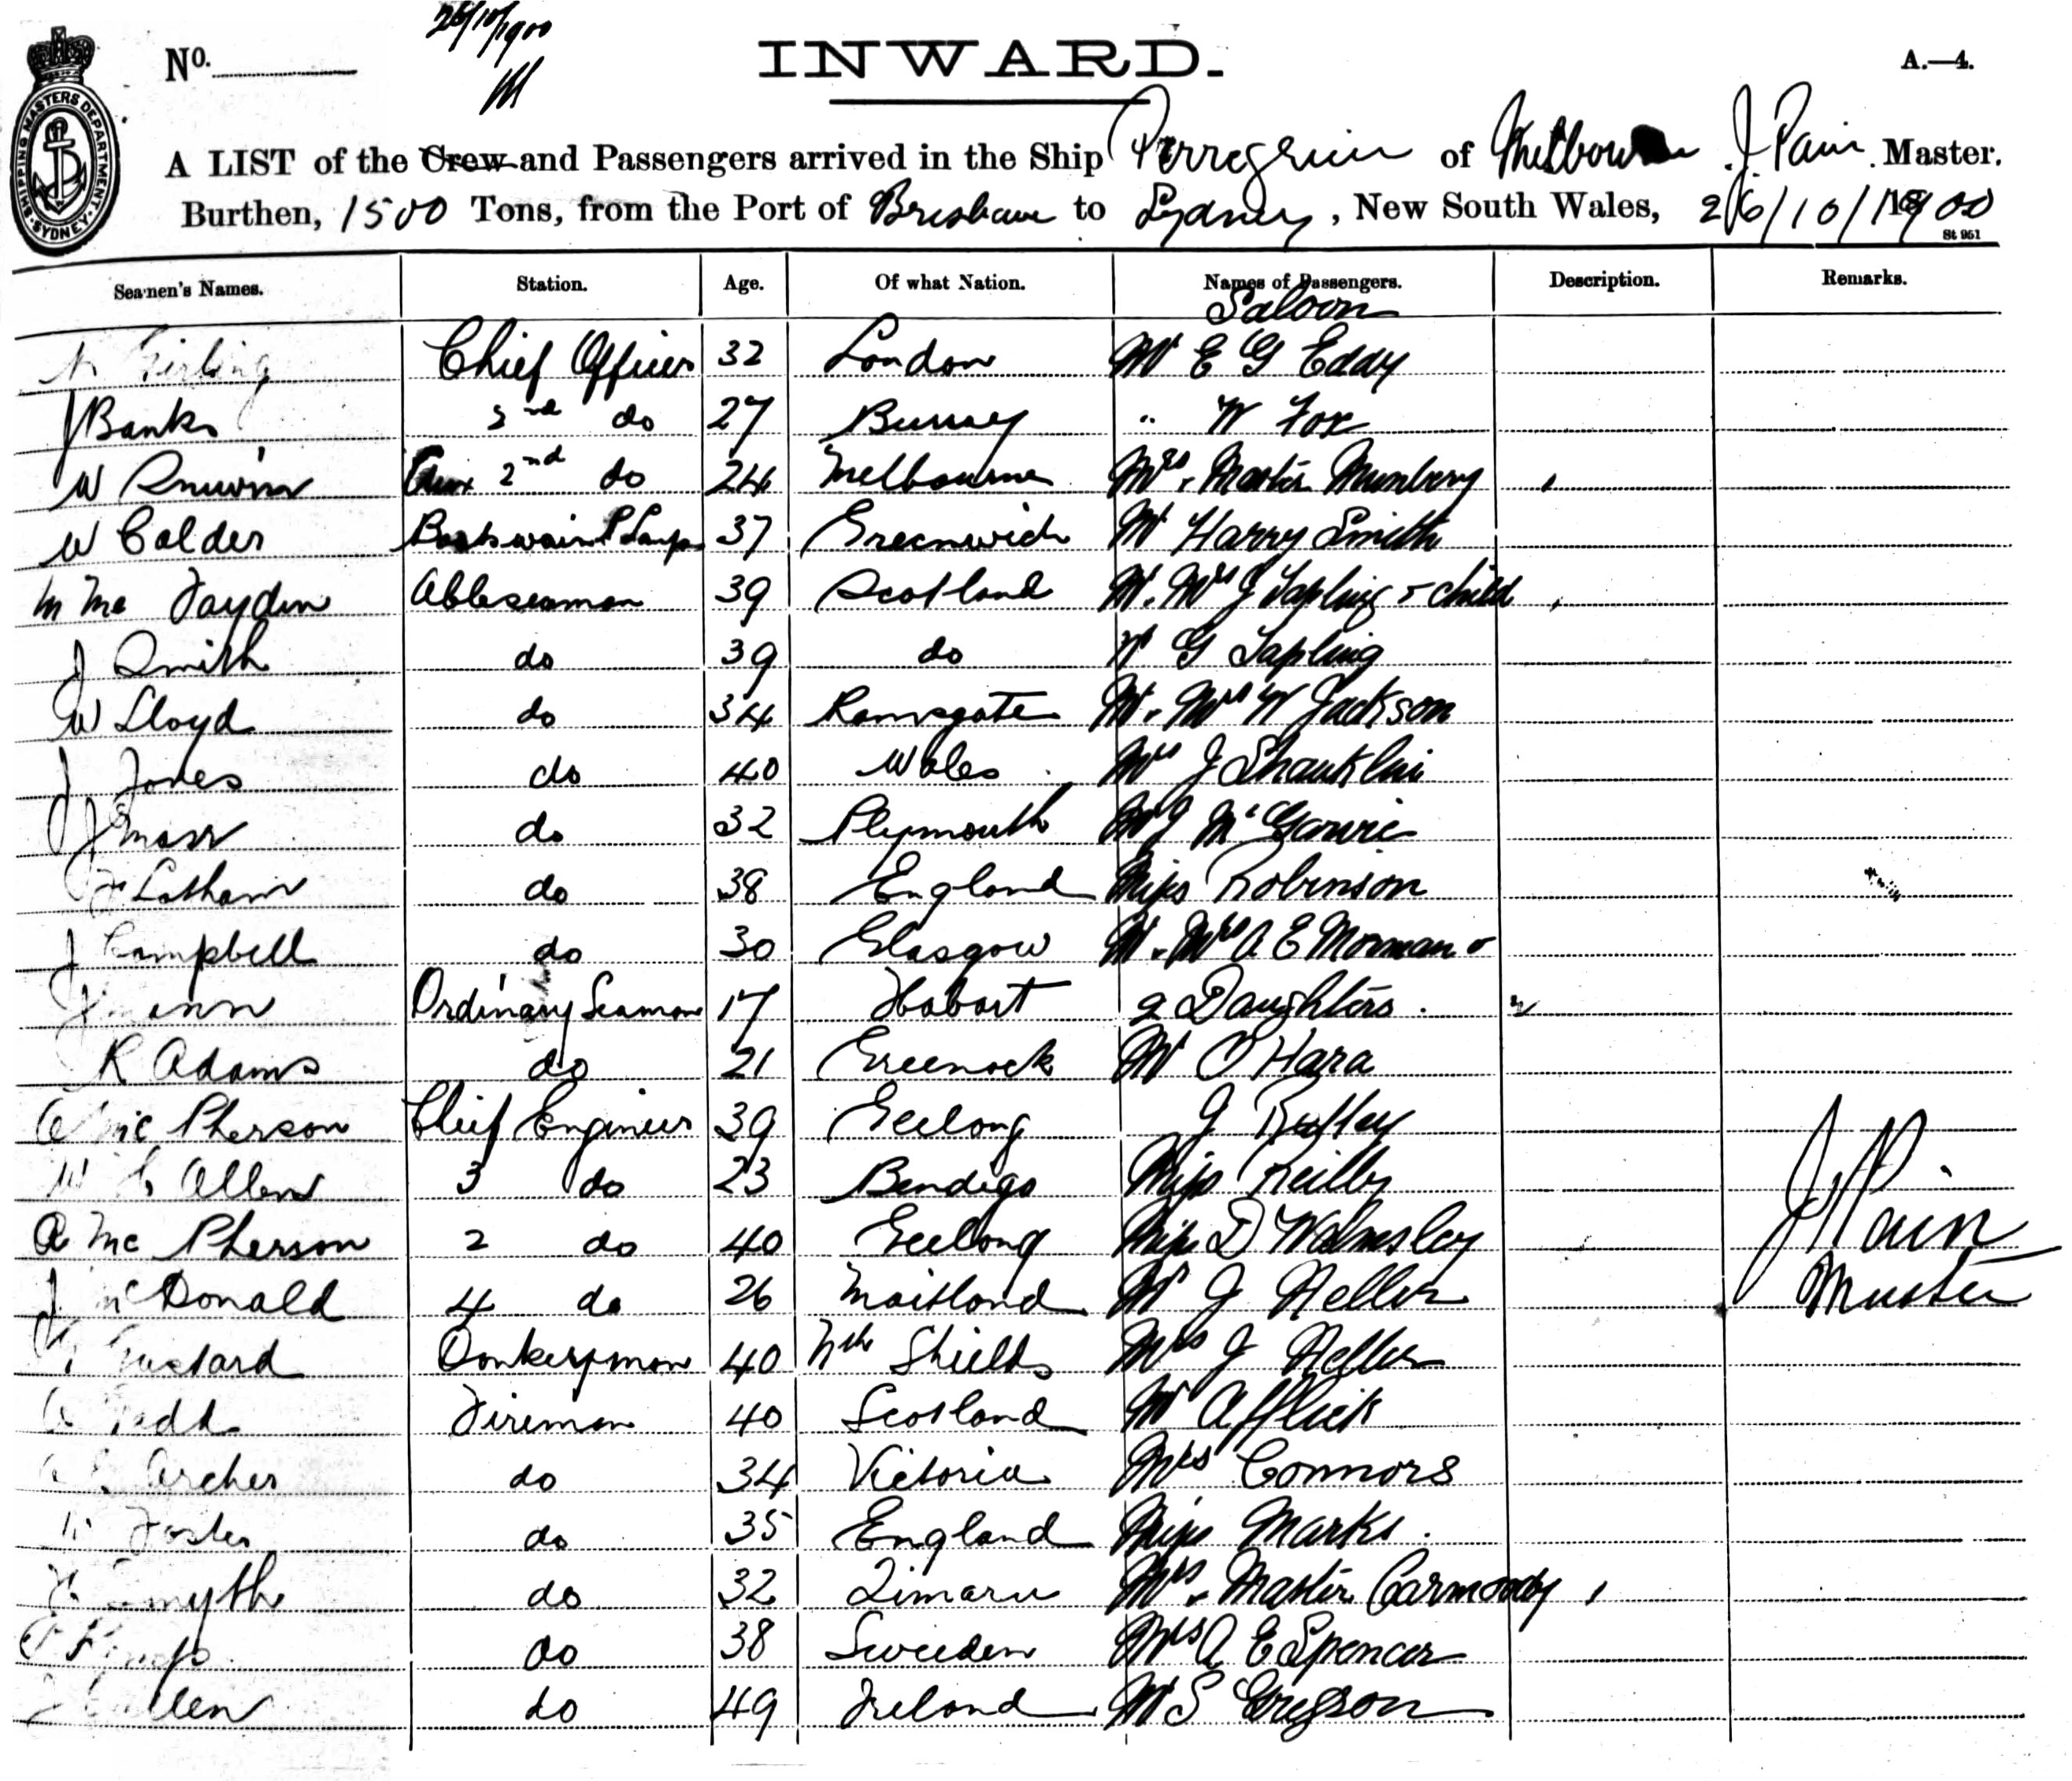 26/10/1900
No.
INWARD.
A.—4.
SHIPPING MASTERS DEPARTMENT. SYDNEY.
A LIST of the Crew and Passengers arrived in the Ship Perregrine of Melbourne J Pain Master.
Burthen, 1500 Tons, from the Port of Brisbane to Sydney, New South Wales, 26/10/1900
St 951
Seamen's Names. Station. Age. Of what Nation. Names of Passengers. Description. Remarks.
Saloon
Girling Chief Officer 32 London Mr E G Eddy
J Banks 2nd do 27 Surrey " W Fox
W 2nd do 24 Melbourne Mrs & Master Munbery
W Calder Boatswain & Lamps 37 Greenwich Mr Harry Smith
M Mc Fayden Ableseaman 39 Scotland Mr & Mrs J Tapling & child
J Smith do 39 do Mr G Tapling
W Lloyd do 34 Ramsgate Mr & Mrs W Jackson
J Jones do 40 Wales Mrs J Shanklin
J do 32 Plymouth Mr J McGarvie
Latham do 38 England Miss Robinson
J Campbell do 30 Glasgow Mr & Mrs A E Morman &
J Mann Ordinary Seaman 17 Hobart 2 Daughters.
R Adams do 21 Greenock Mr O'Hara
Mc Pherson Chief Engineer 39 Geelong J
Allen 3 do 23 Bendigo Miss Reilly
A Mc Pherson 2 do 40 Geelong Miss D Walmsley
J McDonald 4 do 26 Maitland Mr J Heller
Custard Donkeyman 40 Nth Shields Mrs J Heller
Tedd Fireman 40 Scotland Mr Afflick
Archer do 34 Victoria Mrs Connors
Foster do 35 England Miss Marks.
Smythe do 32 Timaru Mrs & Master Carmody
do 38 Sweeden Mrs A E Spencer
do 49 Ireland Mr S Gregson
J Pain
Master